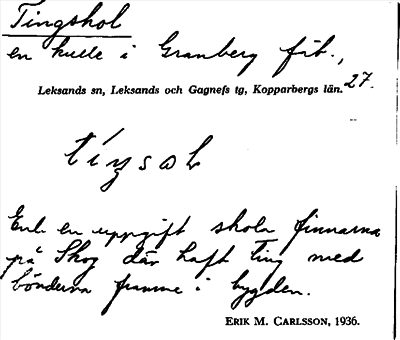 Tingshol
en kulle i Granberg fäb.,
Leksands sn, Leksands och Gagnefs tg, Kopparbergs län. 27.
Enl. en uppgift skola finnarna
på Skog där haft Ting med
bönderna framme i bygden.
ERIK M. CARLSSON, 1936.